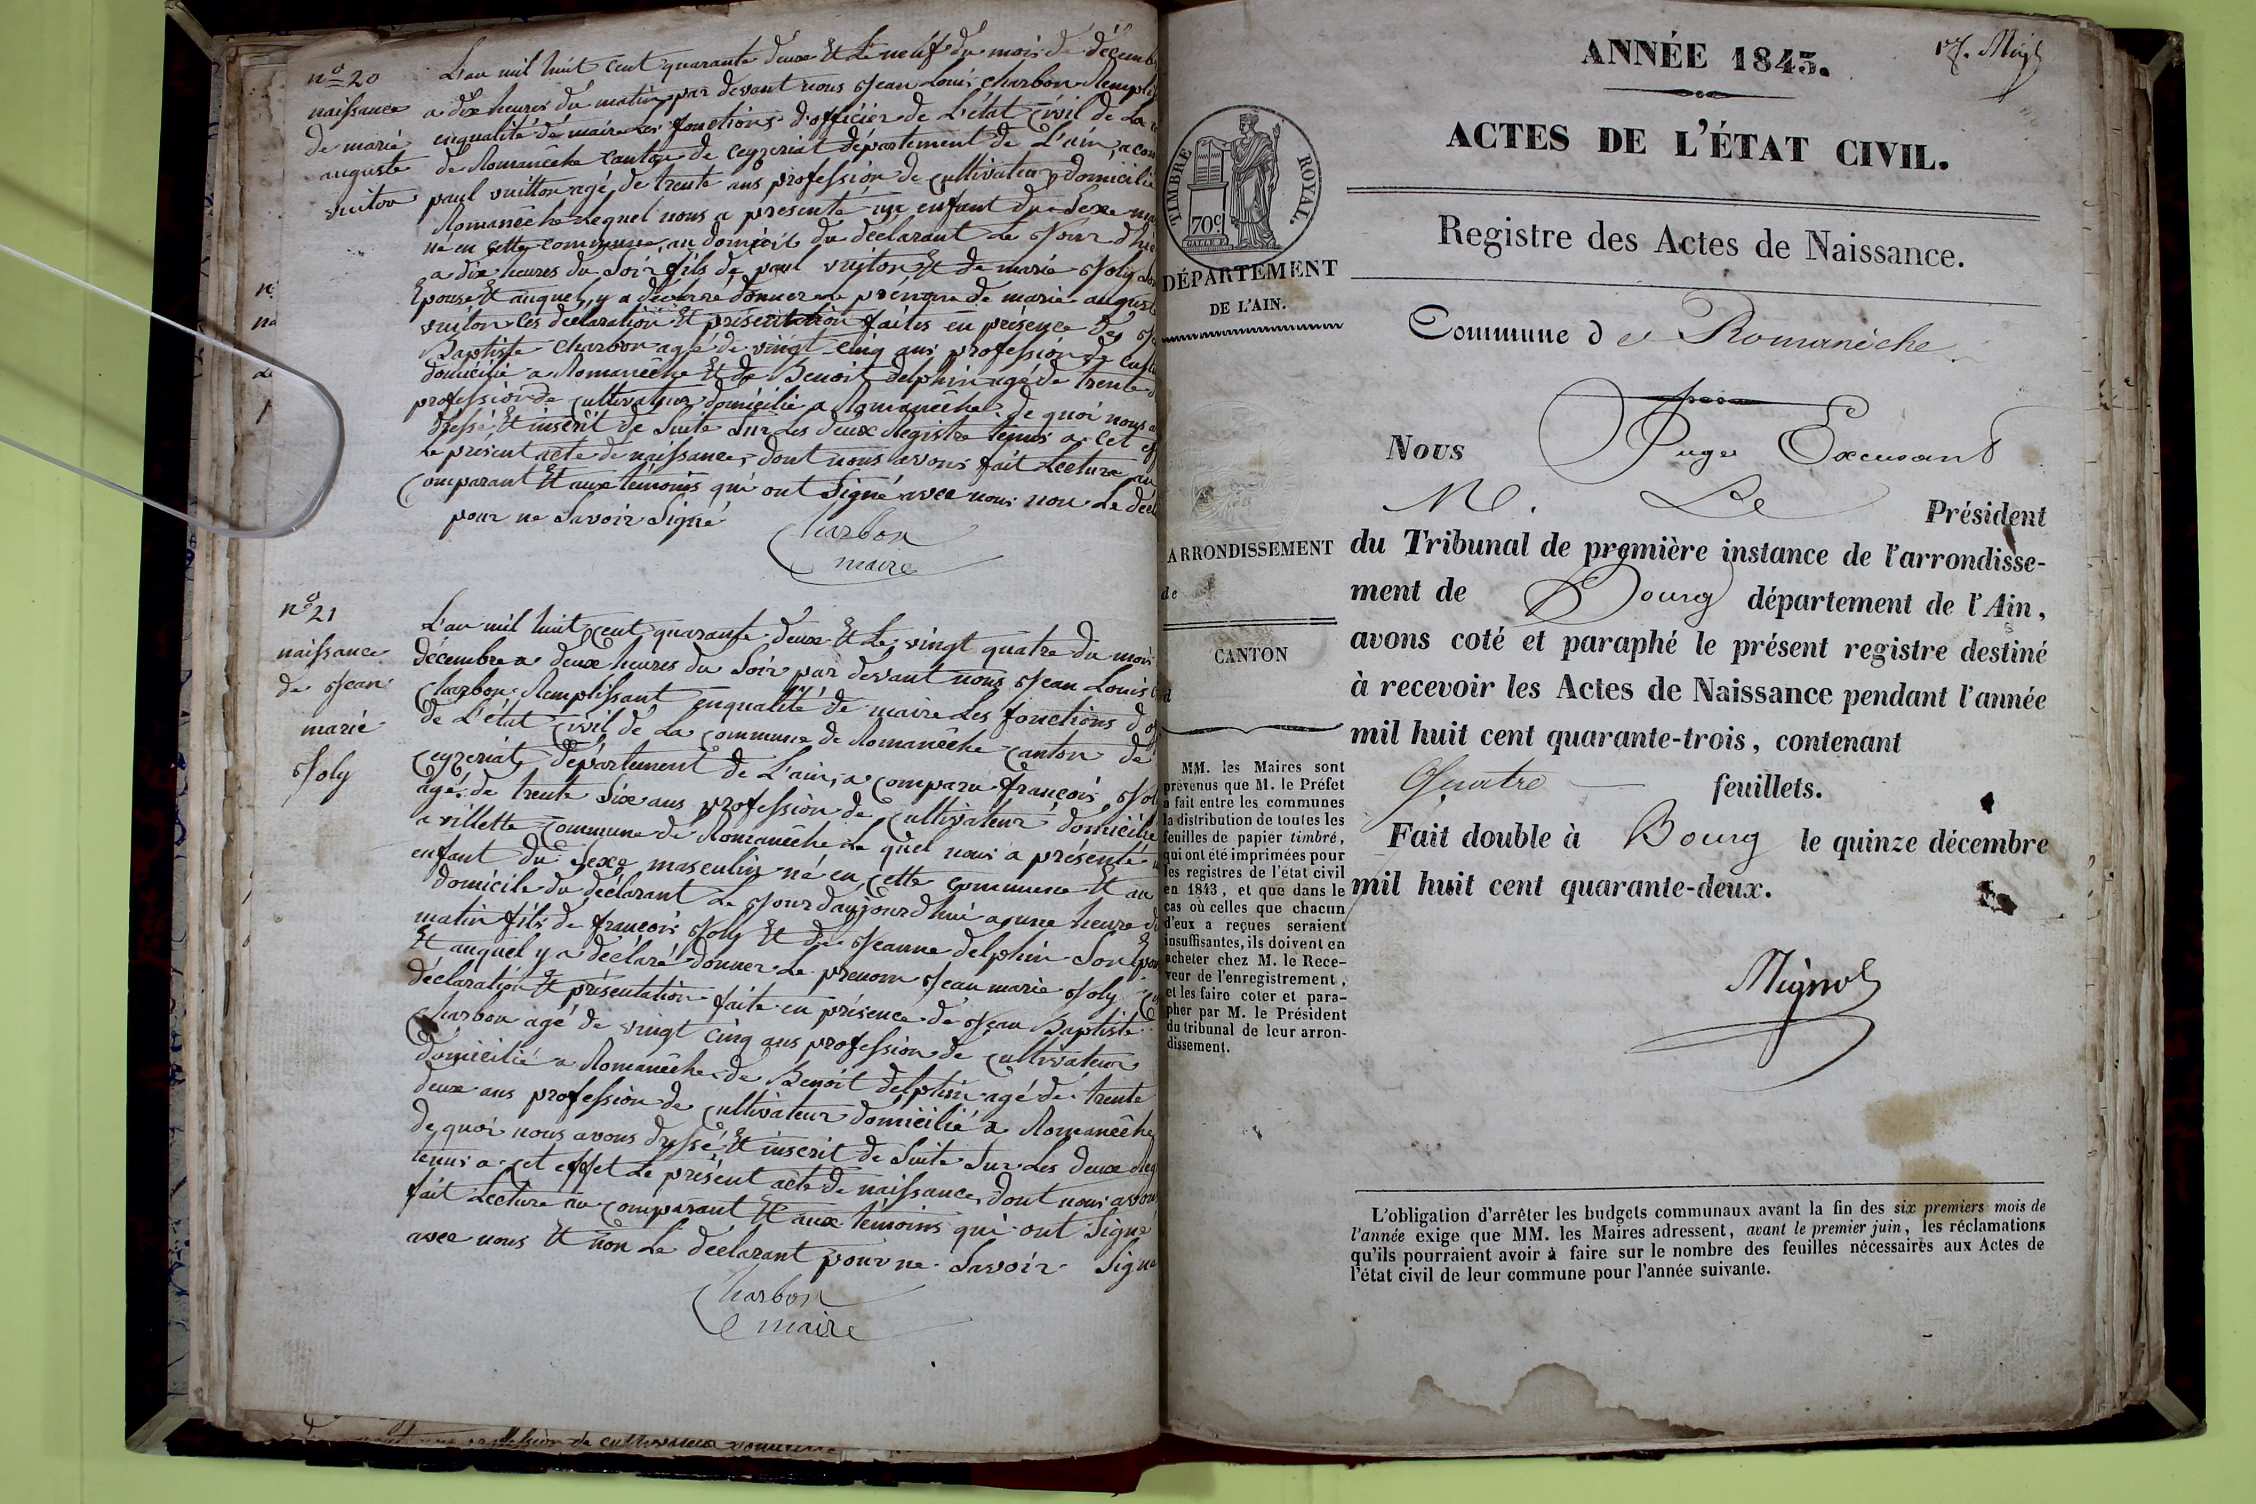 nº 20
naissance
de marie
auguste
vuiton
L'an mil huit cent quarante deux Et Le neuf du mois de décemb
a dix heures du matin par devant nous Jean Louis Charbon Rempli
enqualité de maire Les fonctions d'officier de L'état Civil de La
de Romanêche canton de ceyzeriat département de L'ain, a com
paul vuitton agé de trente ans profession de cultivateur domicilié
Romaneche Lequel nous a présenté un enfant du Sexe ma
né en cette commune au domicile du déclarant Le Jour d'hie
a dix heures du Soir fils de paul vuiton Et de marie Joly
Epouse Et auquel y a déclarré donner le prénom de marie august
vuiton Ces declaration Et présentation faites en présence de
Baptiste Charbon agé de vingt cinq ans profession de cult
domicilié a Romanêche Et de Benoit delphin agé de trente
profession de cultivateur domicilié a Romanêche de quoi nous a
dressé Et inscrit de Suite Sur Les deux Registre tenus a cet ef
Le présent acte de naissance, dont nous avons fait Lecture au
Comparant Et aux témoins qui ont Signé avec nous non Le décl
pour ne Savoir Signé
Charbon
maire
nº 21
naissance
de Jean
marie
Joly
L'an mil huit cent quarante deux Et Le vingt quatre du mois
décembre a deux heures du Soir par devant nous Jean Louis
Charbon Remplissant enqualité de maire Les fonctions d'of
de L'état Civil de La commune de Romanêche canton de
Ceyzeriat, département de L'ain, a comparu françois Jol
agé de trente Six ans profession de cultivateur domicilié
a villette commune de Romanêche Le quel nous a présenté u
enfant du Sexe masculin né en cette commune Et au
domicile du déclarant Le Jour d'aujourd'hui a une heure du
matin fils de françois Joly Et de Jeanne delphin Son Epou
Et auquel y a déclaré donner Le prenom Jean marie Joly
déclaration Et présentation faite en présence de Jean Baptiste
Charbon agé de vingt cinq ans profession de cultivateur
domicilié a Romanêche de Benoit delphin agé de trente
deux ans profession de cultivateur domicilié a Romanêche
de quoi nous avons dressé Et inscrit de Suite Sur Les deux Reg
tenus a cet effet Le présent acte de naissance, dont nous avon
fait Lecture au comparant Et aux témoins qui ont Signé
avec nous Et non Le déclarant pour ne Savoir Signe
Charbon
maire
ANNÉE 1843.
ACTES DE L'ÉTAT CIVIL.
Registre des Actes de Naissance.
TIMBRE ROYAL.
70c
DÉPARTEMENT
DE L'AIN.
Commune de Romanèche
Nous Juge Excusant
M. Le Président
du Tribunal de première instance de l'arrondisse-
ment de Bourg département de l'Ain,
avons coté et paraphé le présent registre destiné
à recevoir les Actes de Naissance pendant l'année
mil huit cent quarante-trois, contenant
Quatre feuillets.
Fait double à Bourg le quinze décembre
mil huit cent quarante-deux.
ARRONDISSEMENT
de
CANTON
d
MM. les Maires sont
prévenus que M. le Préfet
a fait entre les communes
la distribution de toutes les
feuilles de papier timbré,
qui ont été imprimées pour
les registres de l'état civil
en 1843, et que dans le
cas où celles que chacun
d'eux a reçues seraient
insuffisantes, ils doivent en
acheter chez M. le Rece-
veur de l'enregistrement,
et les faire coter et para-
pher par M. le Président
du tribunal de leur arron-
dissement.
L'obligation d'arrêter les budgets communaux avant la fin des six premiers mois de
l'année exige que MM. les Maires adressent, avant le premier juin, les réclamations
qu'ils pourraient avoir à faire sur le nombre des feuilles nécessaires aux Actes de
l'état civil de leur commune pour l'année suivante.